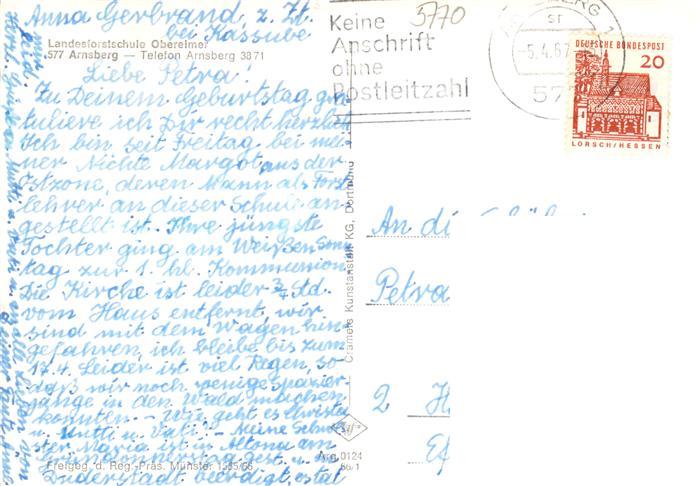 Anna Gerbrand, z. Zt.
bei Kassube
Landesforstschule Obereimer
577 Arnsberg — Telefon Arnsberg 3871
Liebe Petra!
Zu Deinem Geburtstag gra-
tuliere ich Dir recht herzlich
Ich bin seit Freitag bei mei-
ner Nichte Margot aus der
Ostzone, deren Mann als Forst
lehrer an dieser Schule an-
gestellt ist. Ihre jüngste
Tochter ging am Weißen Sonn
tag zur 1. hl. Kommunion
Die Kirche ist leider 3/4 Std.
vom Haus entfernt, wir
sind mit dem Wagen hin
gefahren, ich bleibe bis zum
17.4. Leider ist viel Regen, so-
daß wir noch wenige Spazier-
gänge in den Wald machen
konnten. – Wie geht es Christa
u. Mutti u. Vati? – Meine Schwe
ster Maria ist in Altona am
gest. u. in
Duderstadt beerdigt, es tat
mir
leid.
Freigeg. d. Reg.-Präs. Münster
Cramers Kunstanstalt KG, Dortmund
Arg 0124
66/1
5770
Keine
Anschrift
ohne
Postleitzahl
-5.4.67
577
DEUTSCHE BUNDESPOST
20
LORSCH/HESSEN
An di
Petra
2 H